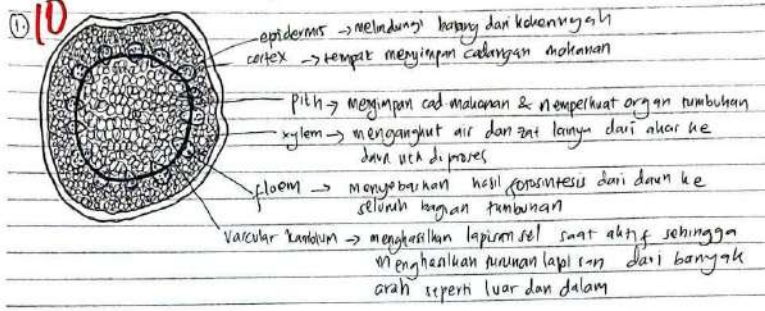 1. 10
epidermis → melindungi batang dari kekeringan
cortex → tempat menyimpan cadangan makanan
pith → menyimpan cad. makanan & memperkuat organ tumbuhan
xylem → mengangkut air dan zat lainya dari akar ke
daun utk diproses
floem → menyebarkan hasil fotosintesis dari daun ke
seluruh bagian tumbuhan
vascular kambium → menghasilkan lapisan sel saat aktif sehingga
menghasilkan susunan lapisan dari banyak
arah seperti luar dan dalam